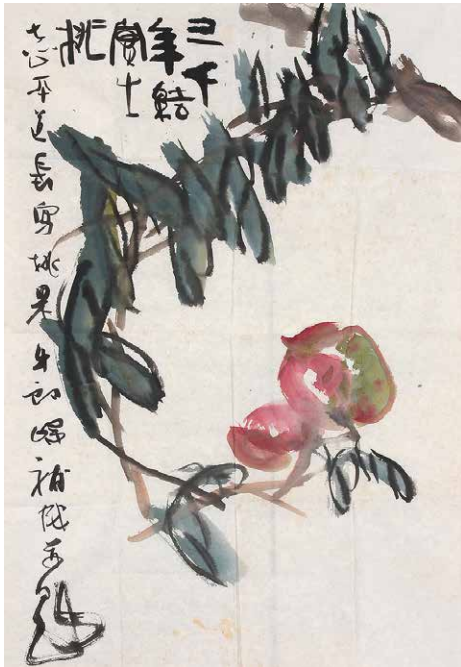 三千
年結
實之
桃
平道長寫桃果補成